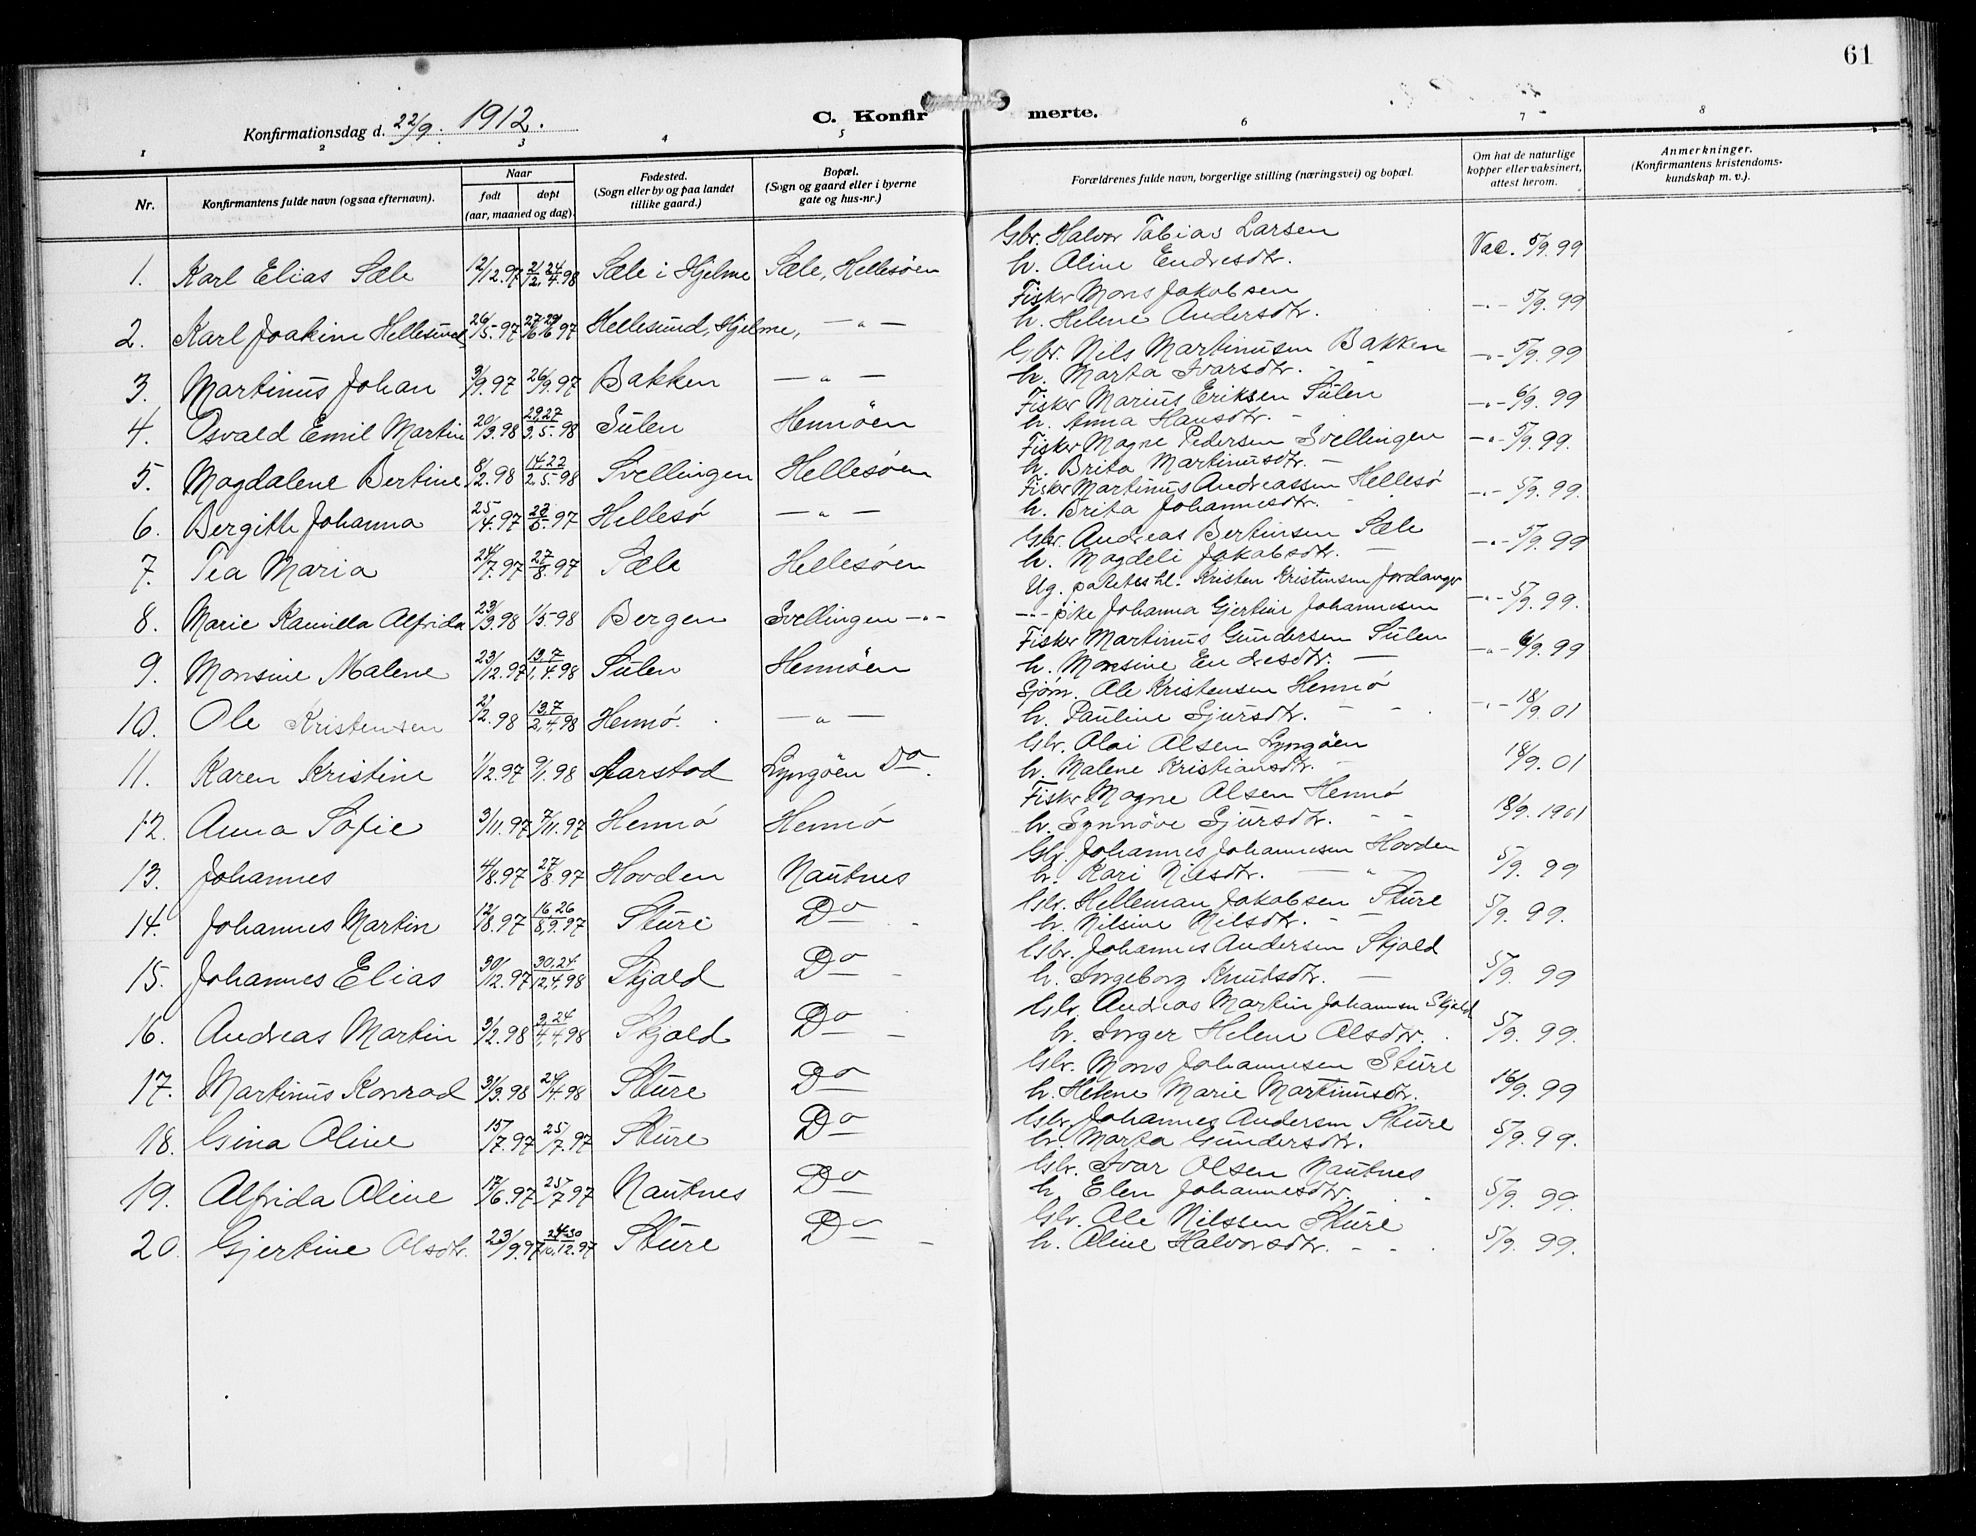 61
Konfirmationsdag d. 22/9. 1912.
C. Konfirmerte.
1 2 3 4 5 6 7 8
Nr.
Konfirmantens fulde navn (ogsaa efternavn).
Naar
født
døpt
(aar, maaned og dag).
Fødested.
(Sogn eller by og paa landet
tillike gaard.)
Bopæl.
(Sogn og gaard eller i byerne
gate og hus-nr.)
Forældrenes fulde navn, borgerlige stilling (næringsvei) og bopæl.
Om hat de naturlige
kopper eller vaksinert,
attest herom.
Anmerkninger.
(Konfirmantens kristendoms-
kundskap m. v.).
Gbr. Halvor Tobias Larsen
1. Karl Elias Sæle 12/12.97 Sæle i Hjelme Sæle, Hellesøen h. Aline Endresdtr. Vac. 5/9.99
Fisker Mons Jakobsen
2. Karl Joakim Hellesund 26/5-97 Hellesund, Hjelme, —"— h. Helene Andersdtr. -"- 5/9.99
Gbr. Nils Martinusen Bakken
3. Martinus Johan 3/9.97 26/9.97 Bakken —"— h. Marta Ivarsdtr. -"- 5/9.99
Fisker Marius Eriksen Sulen
4. Osvald Emil Martin 20/3.98 29,27/3.5.-98 Sulen Hennøen h. Anna Hansdtr. - -"- 6/9.99
Fisker Magne Pedersen Svellingen
5. Magdalene Bertine 8/2.98 14,22/2.5.-98 Svellingen Hellesøen h. Brita Martinusdtr. - -"- 5/9.99.
Fisker Martinus Andreassen Hellesø
6. Bergith Johanna 25/4.97 23/5-.97 Hellesø —"— h. Brita Johannesdtr. - -"- 5/9.99.
Gbr. Andreas Bertinsen Sæle
7. Tea Maria 24/7.97 27/8.97 Sæle Hellesøen h. Magdeli Jakobsdtr. — -"- 5/9.99
Ug. Kristen Kristinsen Jordanger
8. Marie Kamilla Alfrida 23/3.98 1/5-98 Bergen Svellingen -"- -"- pike Johanna Gjertine Johannesen -"- 5/9.99.
Fisker Martinus Gundersen Sulen
9. Monsine Malene 23/12.97 13,7/1,4.98 Sulen Hennøen h. Monsine Endresdtr. — -"- 6/9.99
Sjøm. Ole Kristensen Hennø
10. Ole Kristensen 2/2.98 13,7/2,4.98 Hennø. —"— h. Pauline Sjursdtr. - - -"- 18/9.01
Gbr. Olai Olsen Lyngøen
11. Karen Kristine 1/12.97 9/1.98 Aarstad Lyngøen Do. h. Malene Kristiansdtr. - 18/9.01
Fisker Magne Olsen Hennø
12. Anna Sofie 3/11.97 7/11.97 Hennø Hennø h. Synnøve Sjursdtr. - - 18/9.1901
Gbr. Johannes Johannesen Hovden
13. Johannes 4/8.97 27/8.97 Hovden Nautnes h. Kari Nilsdtr. —"— 5/9.99
Gbr. Helleman Jakobsen Sture
14. Johannes Martin 12/8.97 16,26/8,9.97 Sture Do h. Nilsine Nilsdtr. - — 5/9.99.
Gbr. Johannes Andersen Skjold
15. Johannes Elias 30/12.97 30,24/12,4.98 Skjold Do - h. Ingeborg Knutsdtr. — 5/9.99
Gbr. Andreas Martin Johannesen Skjold
16. Andreas Martin 3/2.98 Skjold Do - h. Inger Helene Olsdtr. 5/9.99.
Gbr. Mons Johannesen Sture
17. Martinus Konrad 31/3.98 24/4.98 Sture Do h. Helene Marie Martinusdtr. 16/9.99
Gbr. Johannes Andersen Sture
18. Gina Oline 15/7.97 25/7.97 Sture Do h. Marta Gundersdtr. 5/9.99.
Gbr. Ivar Olsen Nautnes
19. Alfrida Oline 17/6.97 25/7.97 Nautnes Do h. Elen Johannesdtr. 5/9.99.
Gbr. Ole Nilssen Sture
20. Gjertine Olsdtr. 23/9.97 Sture Do - h. Oline Halvorsdtr. - - 5/9.99.